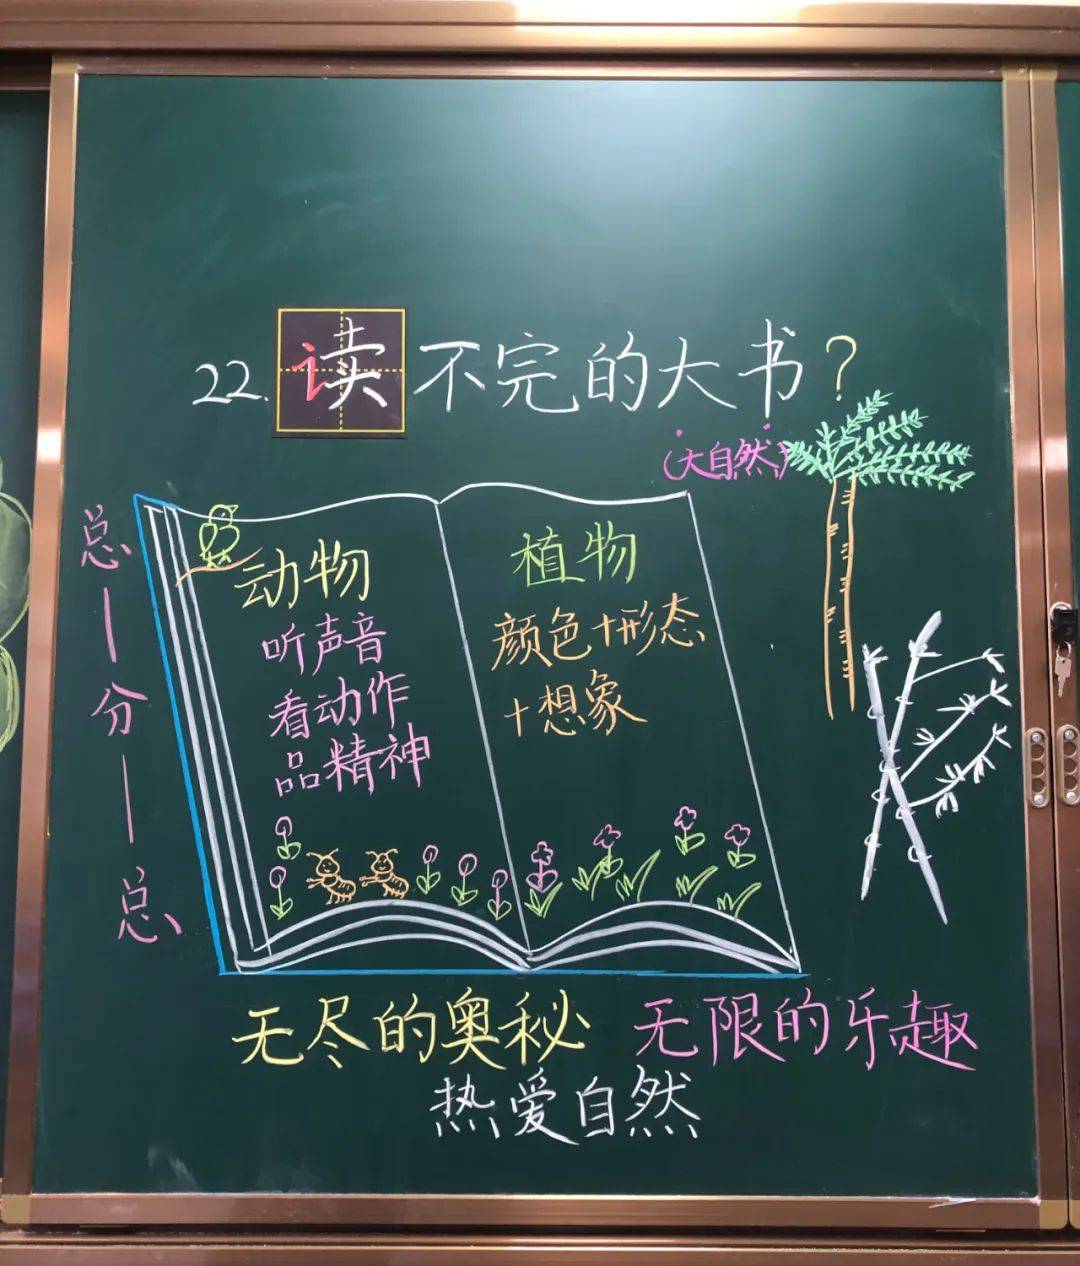 22.读不完的大书?
(大自然)
总—分—总
动物
听声音
看动作
品精神
植物
颜色+形态
+想象
无尽的奥秘 无限的乐趣
热爱自然